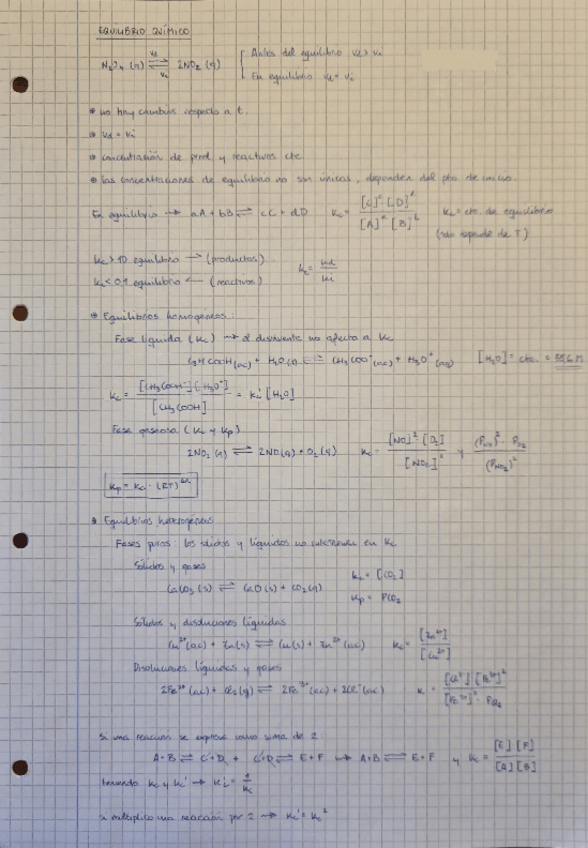 EQUILIBRIO QUÍMICO
N₂O₄ (g) ⇌ 2NO₂ (g) { Antes del equilibrio vd > vi
En equilibrio vd = vi
* no hay cambios respecto a t.
* vd = vi
* concentración de prod. y reactivos cte.
* las concentraciones de equilibrio no son únicas, dependen del pto. de inicio.
En equilibrio → aA + bB ⇌ cC + dD Kc = [C]^c · [D]^d / [A]^a [B]^b Kc = cte. de equilibrio
(solo depende de T)
Kc > 10 equilibrio → (productos)
Kc < 0,1 equilibrio ← (reactivos) Kc = kd / ki
* Equilibrios homogéneos:
Fase líquida (Kc) → el disolvente no afecta a Kc
CH₃COOH (ac) + H₂O (l) ⇌ CH₃COO⁻ (ac) + H₃O⁺ (aq) [H₂O] = cte. = 55,6 M
Kc = [CH₃COO⁻] [H₃O⁺] / [CH₃COOH] = Kc' [H₂O]
Fase gaseosa (Kc y Kp)
2NO₂ (g) ⇌ 2NO (g) + O₂ (g) Kc = [NO]² [O₂] / [NO₂]² y (P_NO)² · P_O₂ / (P_NO₂)²
Kp = Kc · (RT)^Δn
* Equilibrios heterogéneos
Fases puras: los sólidos y líquidos no intervienen en Kc
Sólidos y gases Kc = [CO₂]
CaCO₃ (s) ⇌ CaO (s) + CO₂ (g) Kp = P_CO₂
Sólidos y disoluciones líquidas
Cu²⁺ (ac) + Zn (s) ⇌ Cu (s) + Zn²⁺ (ac) Kc = [Zn²⁺] / [Cu²⁺]
Disoluciones líquidas y gases
2Fe²⁺ (ac) + Cl₂ (g) ⇌ 2Fe³⁺ (ac) + 2Cl⁻ (ac) K = [Cl⁻]² [Fe³⁺]² / [Fe²⁺]² · P_Cl₂
Si una reacción se expresa como suma de 2:
A + B ⇌ C + D, C + D ⇌ E + F → A + B ⇌ E + F y Kc = [E] [F] / [A] [B]
Kc y Kc' → Kc' = 1 / Kc
si multiplico una reacción por 2 → Kc' = Kc²